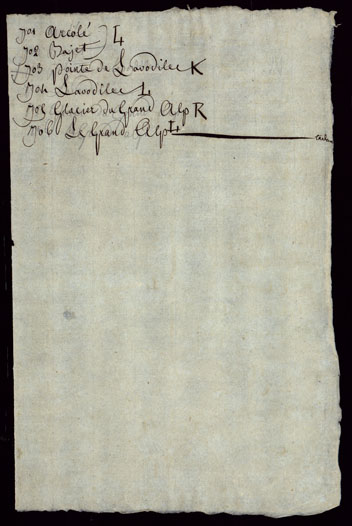 701 Arcolé L
702 Bajet
703 Pointe de Lavodilec K
704 Lavodilec L
705 Glacier du Grand Alp R
706 Le Grand Alp L